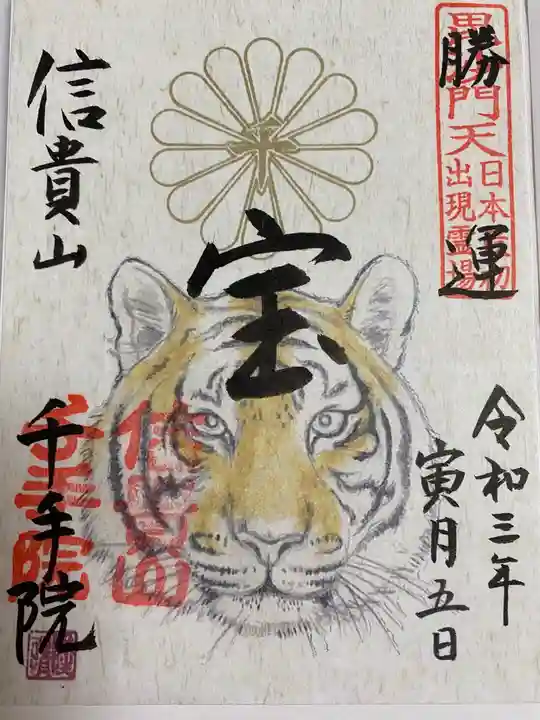 勝運
毘沙門天
日本最初
出現霊場
宝
令和三年
寅月五日
信貴山
千手院
信貴山
千手院